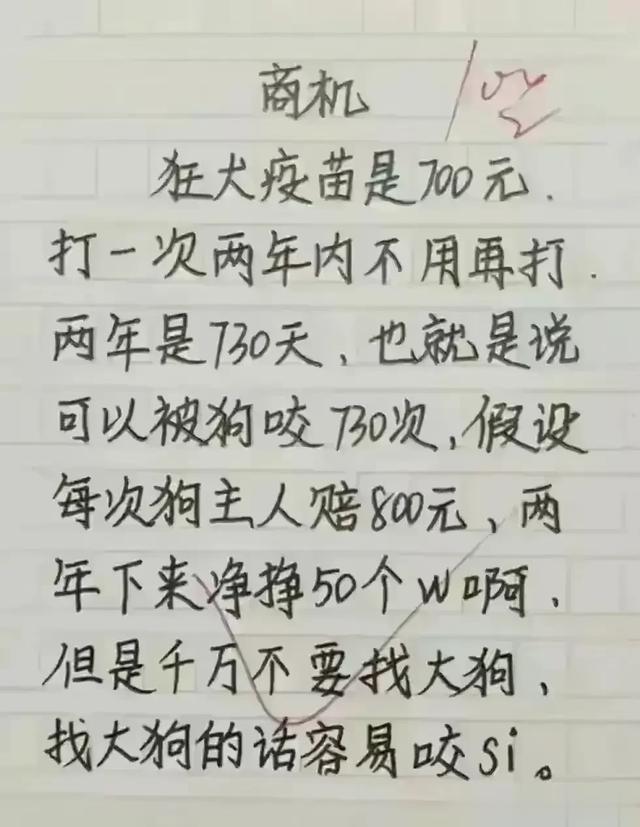 商机
狂犬疫苗是700元.
打一次两年内不用再打.
两年是730天、也就是说
可以被狗咬730次,假设
每次狗主人赔800元、两
年下来净挣50个W啊、
但是千万不要找大狗、
找大狗的话容易咬si。